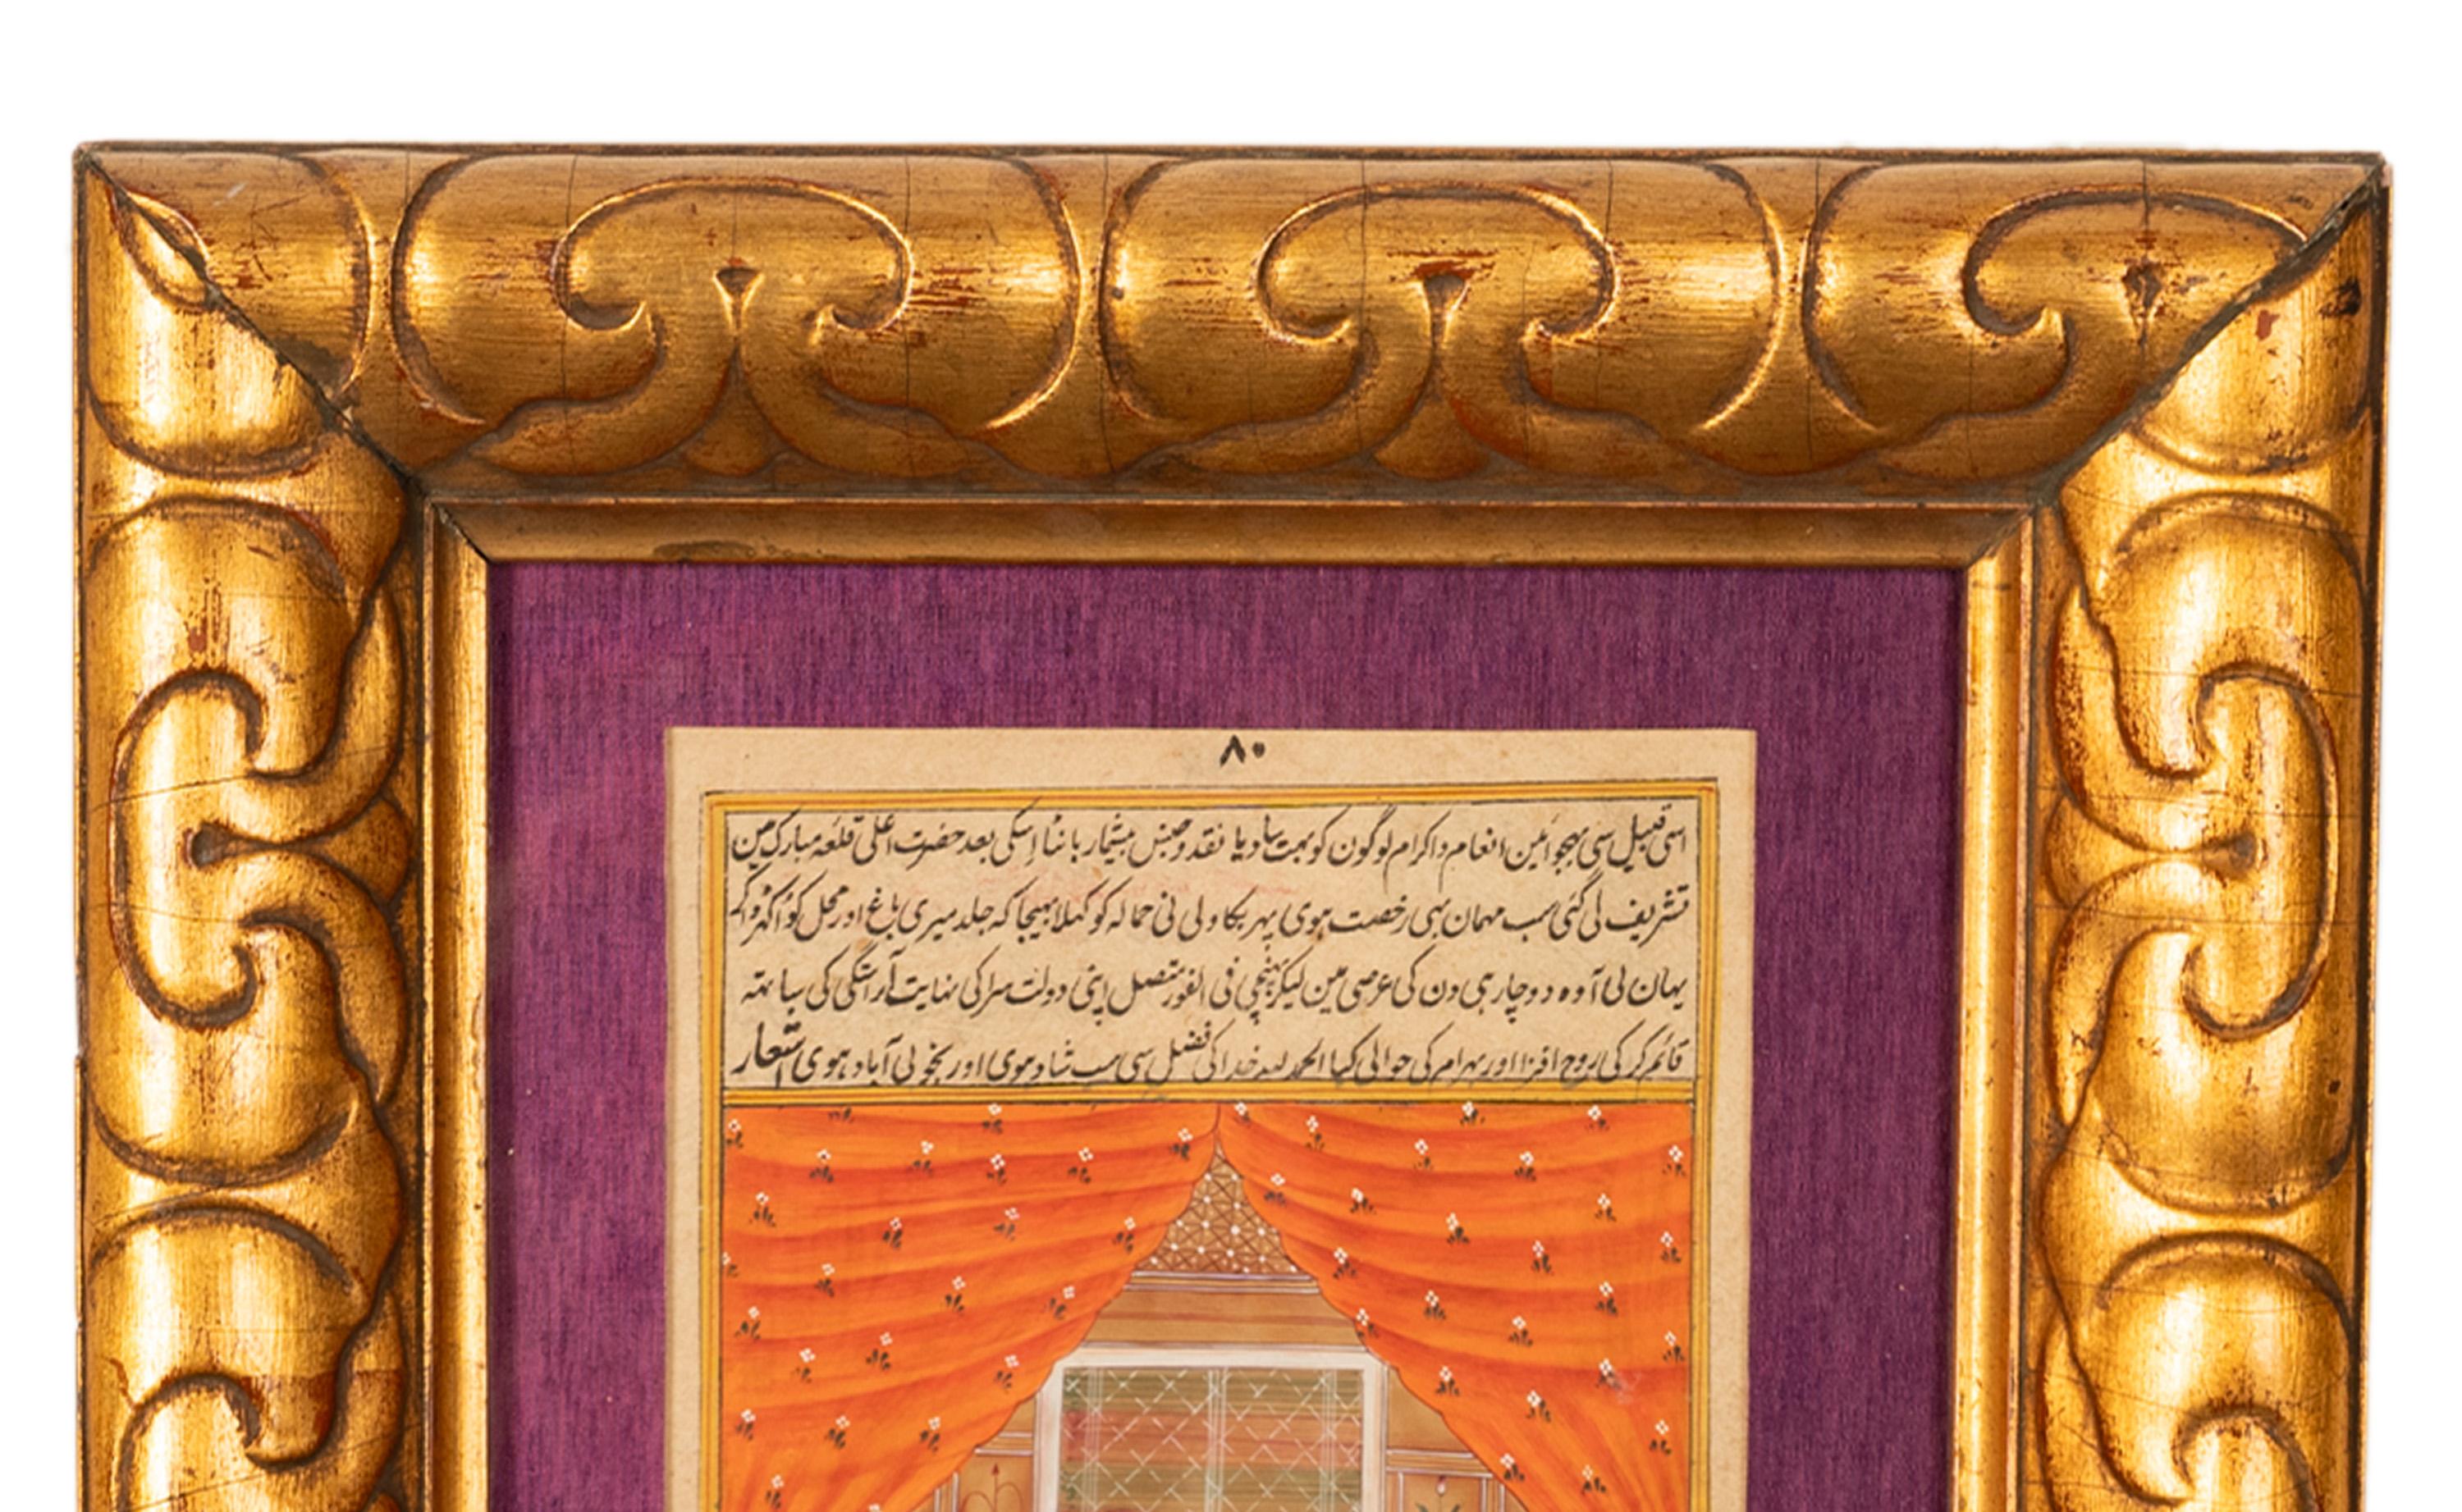 ۸۰
اسی قبیل سی بہجوائین انعام و اکرام لوگون کو بہت سا دیا نقد و جنس بیشمار بانٹا اسکی بعد حضرت اعلی قلعہ مبارک مین
تشریف لی گئی سب مہمان بہی رخصت ہوی پہر بکاولی نی حمالہ کو کہلا بہیجا کہ جلد میری باغ اور محل کو اکہڑوا کر
یہان لی آ وہ دو چار ہی دن کی عرصی مین لیکر پہنچی فی الفور متصل اپنی دولت سرا کی نہایت آراستگی کی ساتہہ
قائم کر کی روح افزا اور بہرام کی حوالی کیا الحمد للہ خدا کی فضل سی سب شاد ہوی اور بخوبی آباد ہوی اشعار